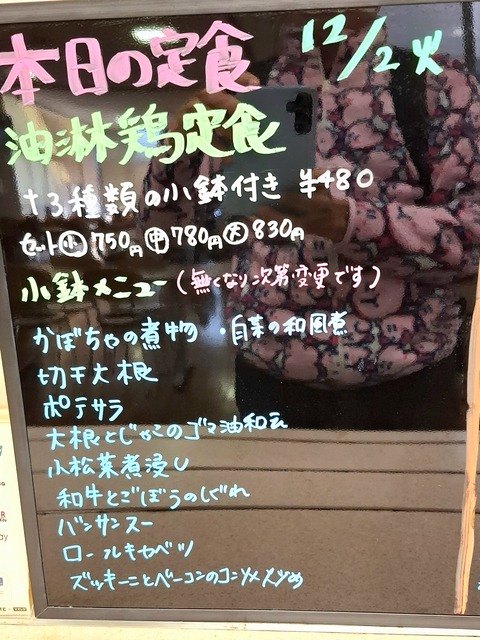 本日の定食 12/2 火
油淋鶏定食
+3種類の小鉢付き ¥480
セット小750円 中780円 大830円
小鉢メニュー(無くなり次第変更です)
かぼちゃの煮物 ・白菜の和風煮
切干大根
ポテサラ
大根とじゃこのゴマ油和え
小松菜煮浸し
和牛とごぼうのしぐれ
バンサンスー
ロールキャベツ
ズッキーニとベーコンのコンソメ炒め